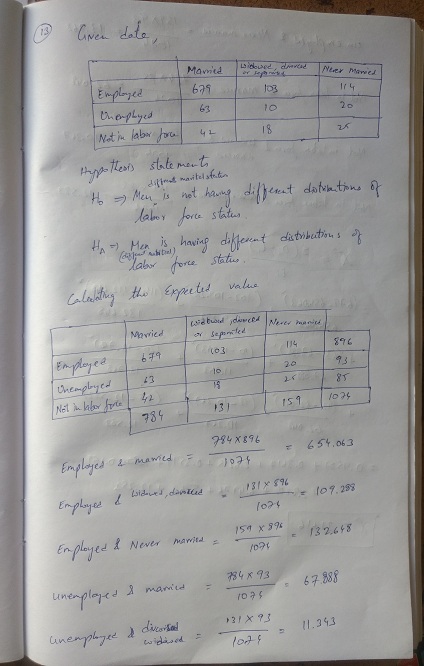 13 Given data,
Married Widowed, divorced or seperated Never married
Employed 679 103 114
Unemployed 63 10 20
Not in labor force 42 18 25
Hypothesis statements
different marital status
H₀ ⇒ Men is not having different distributions of
labor force status.
Hₐ ⇒ Men is having different distributions of
labor force status.
Calculating the Expected value
Married Widowed, divorced or seperated Never married
Employed 679 103 114 896
Unemployed 63 10 20 93
Not in labor force 42 18 25 85
784 131 159 1074
Employed & married = 784×896 / 1074 = 654.063
Employed & widowed, divorced = 131×896 / 1074 = 109.288
Employed & Never married = 159×896 / 1074 = 132.648
Unemployed & married = 784×93 / 1074 = 67.888
Unemployed & divorced widowed = 131×93 / 1074 = 11.343